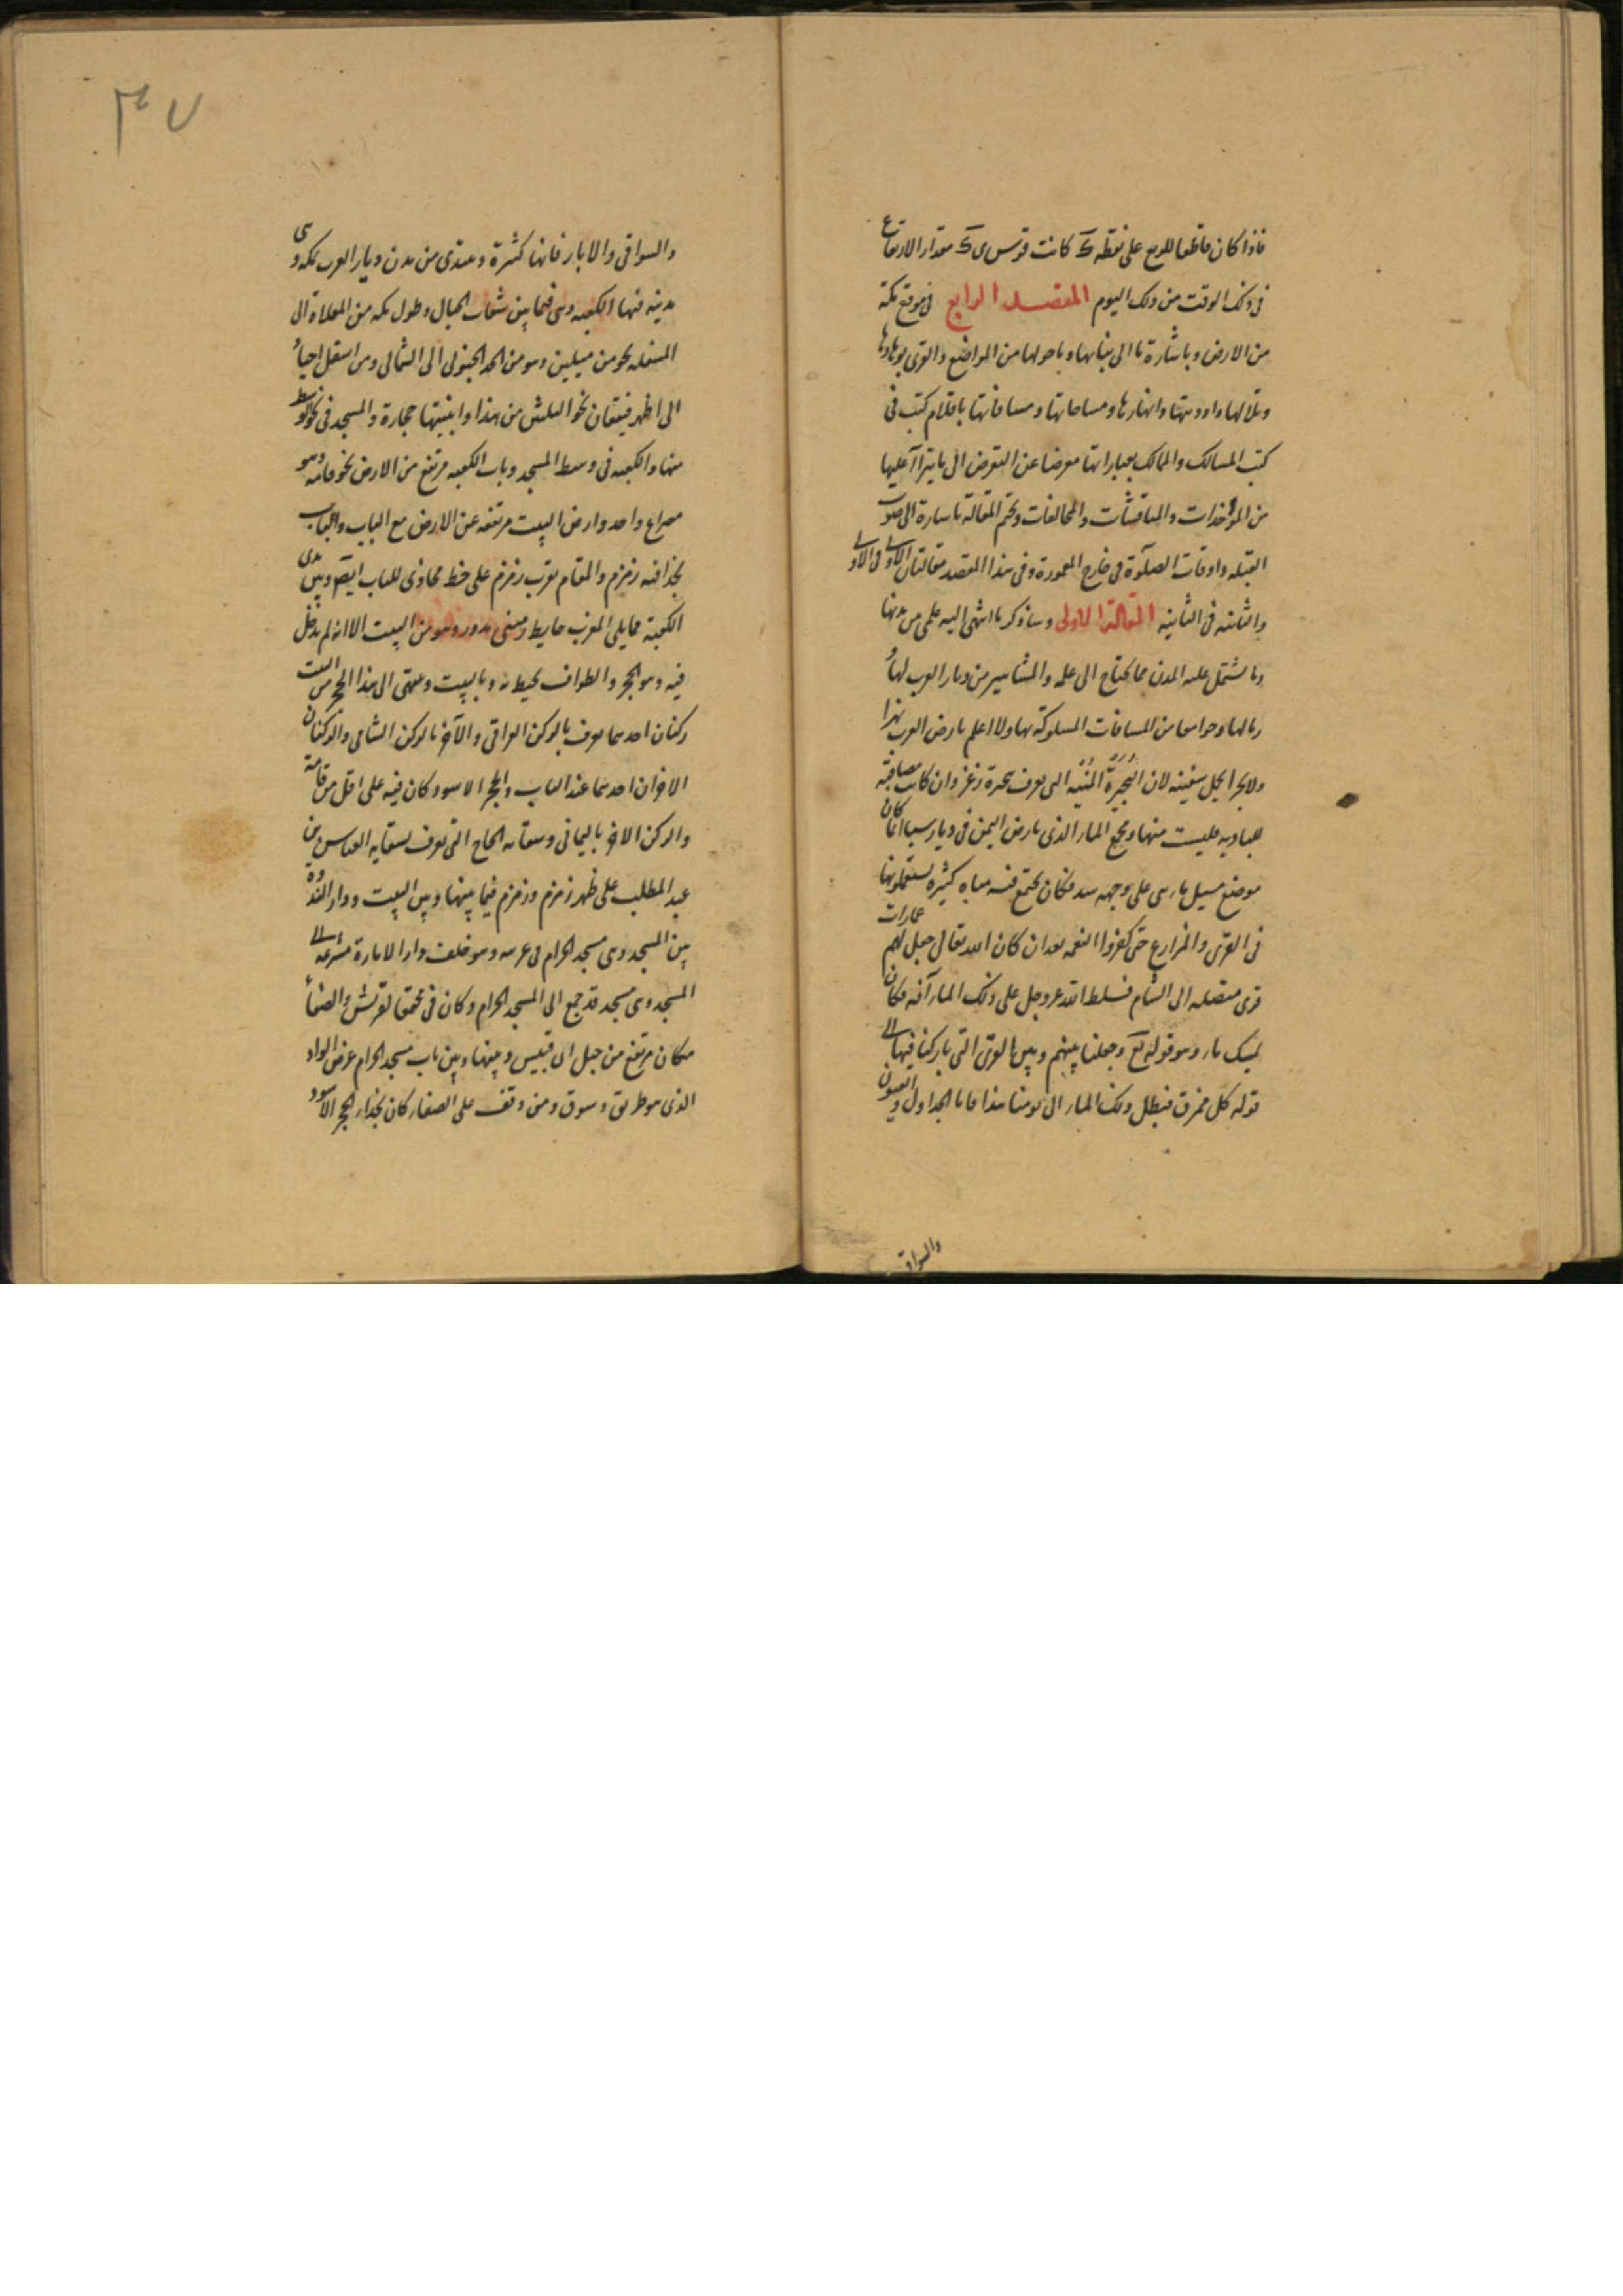 فاذا كان قاطعا للربع على نقطه ك كانت قوس ى ك مقدار الارتفاع
فى ذلك الوقت من ذلك اليوم المقصد الرابع فى موقع مكة
من الارض و باشارة ما الى بنائها و ما حولها من المواضع والقرى بوهادها
و تلالها و اوديتها و انهارها و مساحاتها و مسافاتها باقلام كتبت فى
كتب المسالك والممالك بعباراتها معرضا عن التعرض الى ما يترا آ عليها
من المؤاخذات والمناقشات والمخالفات و نختم المقالة باشارة الى صوب
القبله و اوقات الصلوة فى خارج المعمورة و فى هذا المقصد مقالتان الاولى فى الاولى
والثانية فى الثانيه المقالة الاولى و ساذكر ما انتهى اليه علمى من مدنها
و ما يشتمل عليه المدن مما يحتاج الى علمه والمشاهير من ديار العرب لها
رمالها و جوامعها من المسافات المسلوكة بها ولا اعلم بارض العرب نهرا
ولا بحرا يحمل سفينه لان البحيرة المنتنه التى تعرف ببحيرة زغر و ان كانت مصاقبة
للباديه فليست منها و مجمع الماء الذى بارض اليمن فى ديار سبا انما كان
موضع مسيل ماء بنى على وجهه سد فكان يجتمع فيه مياه كثيره يستعملونها
فى القرى والمزارع حتى كفروا النعمه بعد ان كان الله تعالى جعل لهم عمارات
قرى متصله الى الشام فسلط الله عز و جل على ذلك الماء آفه فكان
يمسك ماء و هو قوله تع و جعلنا بينهم و بين القرى التى باركنا فيها الى
قوله كل ممزق فبطل ذلك الماء الى يومنا هذا فاما الجداول و العيون
والسواقى
٣٧
والسواقى والابار فانها كثيرة و نبتدى من مدن ديار العرب بمكه و هى
مدينه فيها الكعبه و هى فيما بين شعاب الجبال و طول مكه من المعلاة الى
المسفله نحو من ميلين و هو من الحد الجنوبى الى الشمالى و من اسفل اجياد
الى ظهر قيقعان نحو الثلثين من هذا و ابنيتها حجارة والمسجد فى نحو الوسط
منها والكعبه فى وسط المسجد و باب الكعبه مرتفع من الارض نحو قامه و هو
مصراع واحد و ارض البيت مرتفعه عن الارض مع الباب والباب
بحذا قبه زمزم والمقام بقرب زمزم على خط محاذى للباب ايضا و بين يدى
الكعبة مما يلى المغرب حايط مبنى مدور و هو من البيت الا انه لم يدخل
فيه و هو الحجر والطواف يحيط به و بالبيت و ينتهى الى هذا الحجر من البيت
ركنان احدهما يعرف بالركن العراقى والآخر بالركن الشامى والركنان
الاخران احدهما عند الباب والحجر الاسود كان فيه على اقل من قامة
والركن الاخر باليمانى و سقايه الحاج التى تعرف بسقايه العباس بن
عبد المطلب على ظهر زمزم و زمزم فيما بينها و بين البيت و دار الندوه
بين المسجد و هى مسجد الحرام فى غربيه و هو خلف دار الامارة مشرعه الى
المسجد و هى مسجد قد جمع الى المسجد الحرام و كان فى مجمعا لقريش والصفا
مكان مرتفع من جبل ابى قبيس و بينها و بين باب مسجد الحرام عرض الواد
الذى هو طريق و سوق و من وقف على الصفا كان بحذاء الحجر الاسود